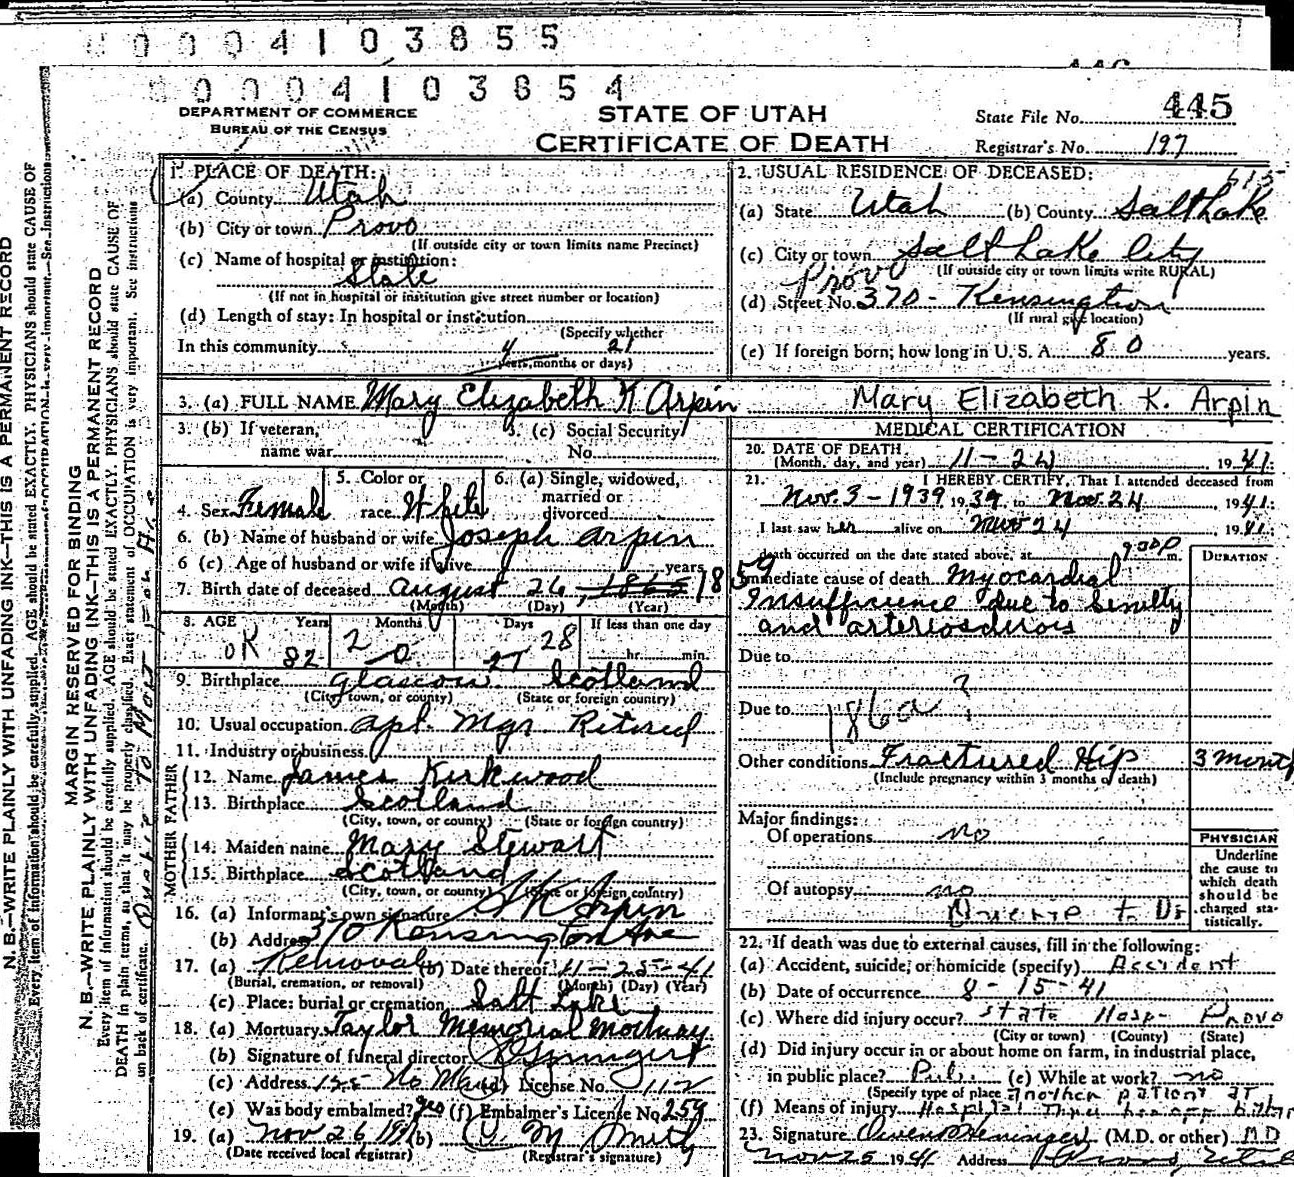 0 0 0 4 1 0 3 8 5 5
0 0 0 4 1 0 3 8 5 4
DEPARTMENT OF COMMERCE
BUREAU OF THE CENSUS
STATE OF UTAH
CERTIFICATE OF DEATH
State File No. 445
Registrar's No. 197
1. PLACE OF DEATH:
(a) County Utah
(b) City or town Provo
(If outside city or town limits name Precinct)
(c) Name of hospital or institution:
State
(If not in hospital or institution give street number or location)
(d) Length of stay: In hospital or institution
(Specify whether
In this community 4 21
years, months or days)
2. USUAL RESIDENCE OF DECEASED: 615
(a) State Utah (b) County Salt Lake
(c) City or town Salt Lake City
(If outside city or town limits write RURAL)
Provo
(d) Street No. 370 - Kensington
(If rural give location)
(e) If foreign born; how long in U. S. A. 80 years.
3. (a) FULL NAME Mary Elizabeth K Arpin
Mary Elizabeth K. Arpin
3. (b) If veteran, name war
3. (c) Social Security No.
4. Sex Female
5. Color or race White
6. (a) Single, widowed, married or divorced
6. (b) Name of husband or wife Joseph Arpin
6 (c) Age of husband or wife if alive years
7. Birth date of deceased August 26, 1865 1859
(Month) (Day) (Year)
8. AGE Years Months Days If less than one day
OK 82 2 0 27 28 hr. min.
9. Birthplace Glascow Scotland
(City, town, or county) (State or foreign country)
10. Usual occupation Apt. Mgr. Retired
11. Industry or business
FATHER
12. Name James Kirkwood
13. Birthplace Scotland
(City, town, or county) (State or foreign country)
MOTHER
14. Maiden name Mary Stewart
15. Birthplace Scotland
(City, town, or county) (State or foreign country)
16. (a) Informant's own signature K Arpin
(b) Address 370 Kensington Ave
17. (a) Removal (b) Date thereof 11-25-41
(Burial, cremation, or removal) (Month) (Day) (Year)
(c) Place: burial or cremation Salt Lake
18. (a) Mortuary Taylor Memorial Mortuary
(b) Signature of funeral director
(c) Address 125 No Main (d) License No. 112
(e) Was body embalmed? yes (f) Embalmer's License No 259
19. (a) Nov 26 1941 (b) M Smith
(Date received local registrar) (Registrar's signature)
MEDICAL CERTIFICATION
20. DATE OF DEATH
(Month, day, and year) 11-24 1941
21. I HEREBY CERTIFY, That I attended deceased from
Nov. 3 - 1939, 1939 to Nov. 24, 1941
I last saw her alive on Nov 24, 1941
death occurred on the date stated above, at 9:00 P m.
DURATION
Immediate cause of death Myocardial
Insufficience due to Senility
and arteriosclerosis
Due to
Due to 186a ?
Other conditions Fractured Hip 3 month
(Include pregnancy within 3 months of death)
Major findings:
Of operations no
Of autopsy no
PHYSICIAN
Underline the cause to which death should be charged statistically.
22. If death was due to external causes, fill in the following:
(a) Accident, suicide, or homicide (specify) Accident
(b) Date of occurrence 8-15-41
(c) Where did injury occur? State Hosp- Provo
(City or town) (County) (State)
(d) Did injury occur in or about home on farm, in industrial place,
in public place? Pub. (e) While at work? no
(Specify type of place) another patient at
(f) Means of injury Hospital
23. Signature Owen Heninger (M.D. or other) M D
Nov 25 1941 Address Provo, Utah
N. B.—WRITE PLAINLY WITH UNFADING INK—THIS IS A PERMANENT RECORD
MARGIN RESERVED FOR BINDING
N. B.—WRITE PLAINLY WITH UNFADING INK—THIS IS A PERMANENT RECORD
Every item of information should be carefully supplied. AGE should be stated EXACTLY. PHYSICIANS should state CAUSE OF
DEATH in plain terms, so that it may be properly classified. Exact statement of OCCUPATION is very important. See instructions
on back of certificate.